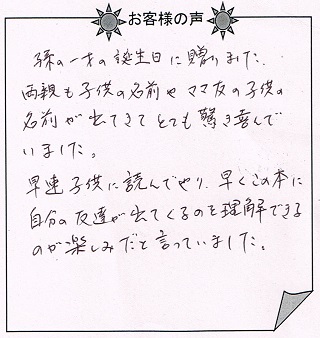 お客様の声
孫の一才の誕生日に贈りました。
両親も子供の名前やママ友の子供の
名前が出てきてとても驚き喜んで
いました。
早速子供に読んでやり、早くこの本に
自分の友達が出てくるのを理解できる
のが楽しみだと言っていました。